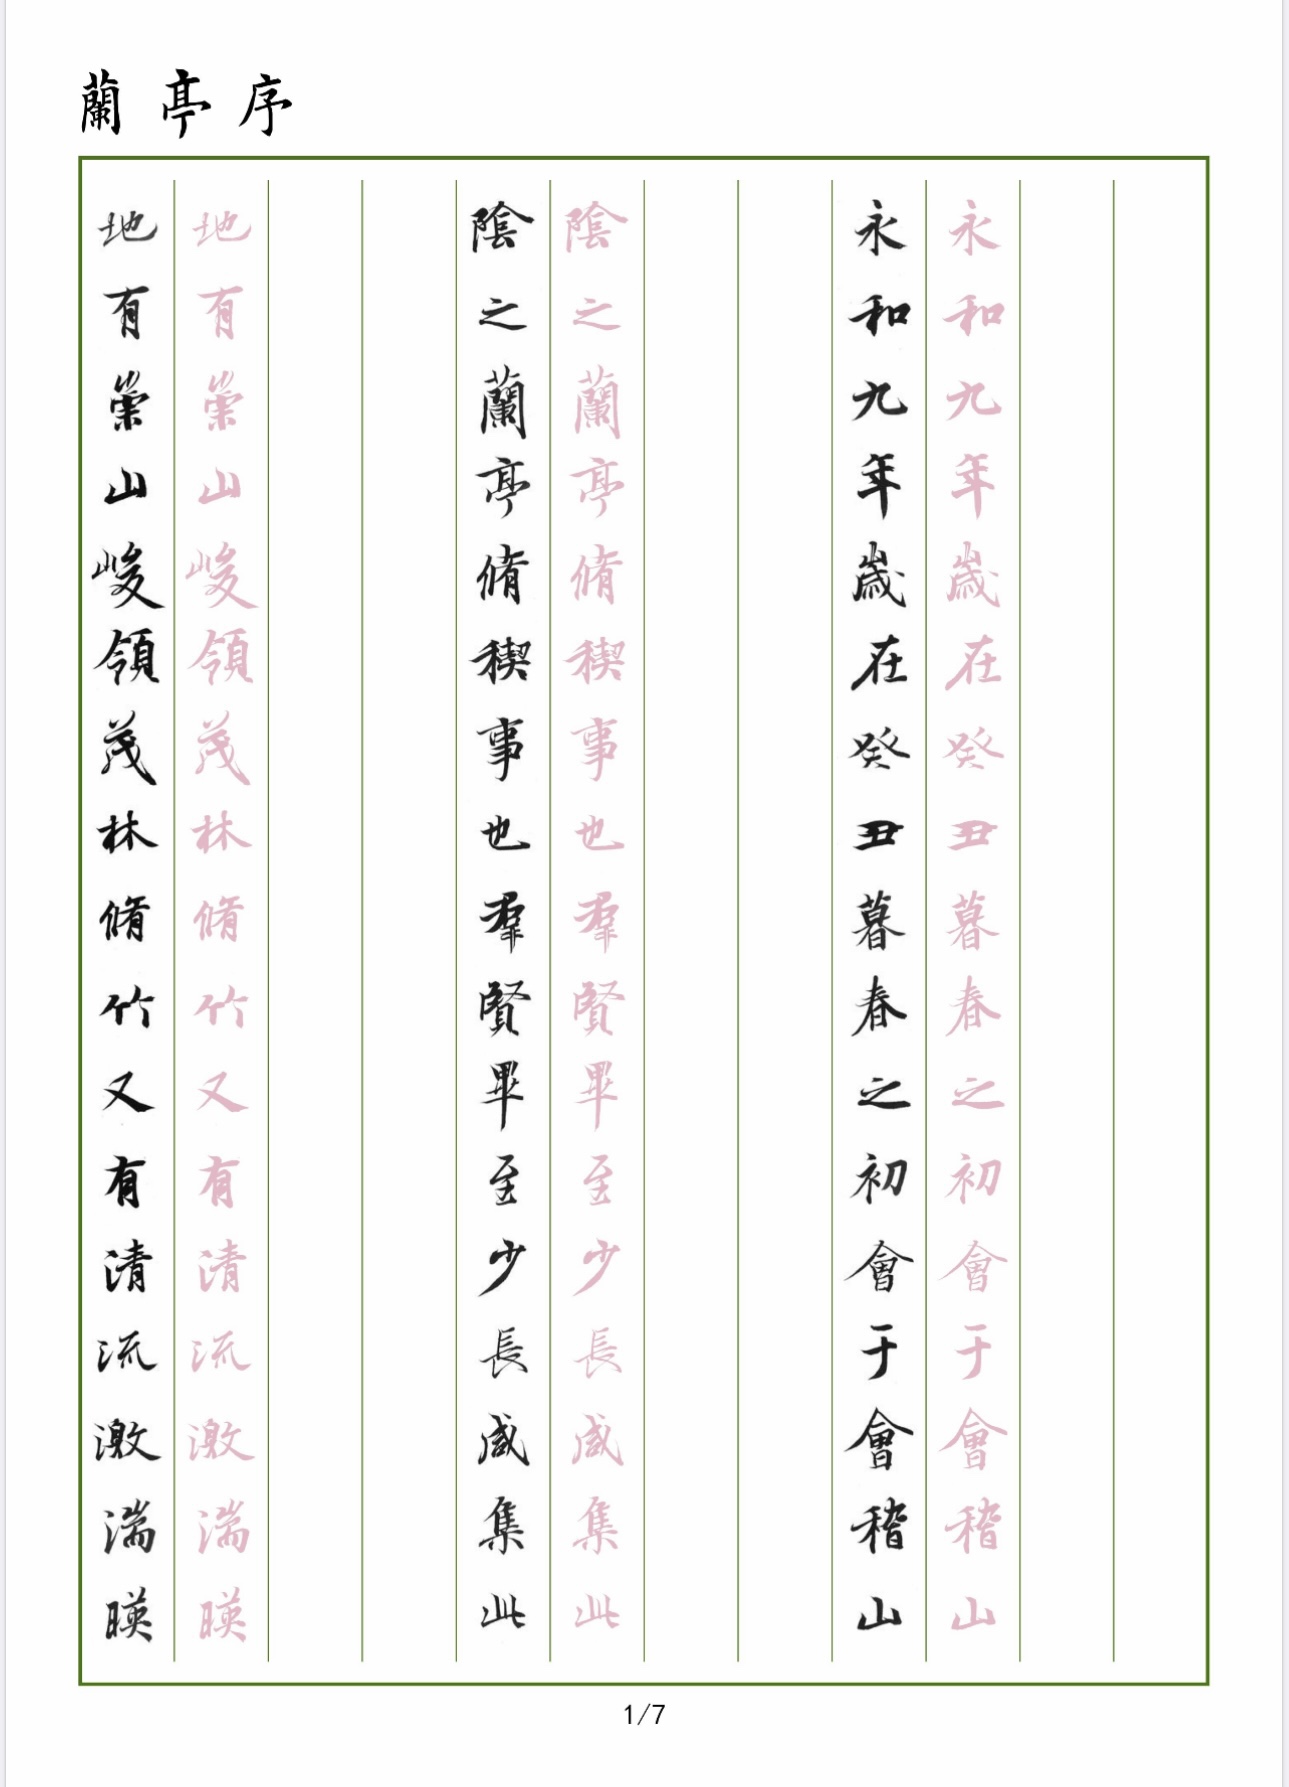 蘭亭序
永和九年歲在癸丑暮春之初會于會稽山
永和九年歲在癸丑暮春之初會于會稽山
陰之蘭亭脩稧事也羣賢畢至少長咸集此
陰之蘭亭脩稧事也羣賢畢至少長咸集此
地有崇山峻領茂林脩竹又有清流激湍暎
地有崇山峻領茂林脩竹又有清流激湍暎
1/7